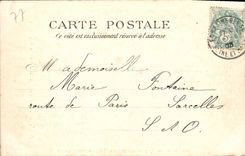 77
CARTE POSTALE
Ce côté est exclusivement réservé à l'adresse
Mademoiselle
Marie Fontaine
route de Paris Sarcelles
S & O